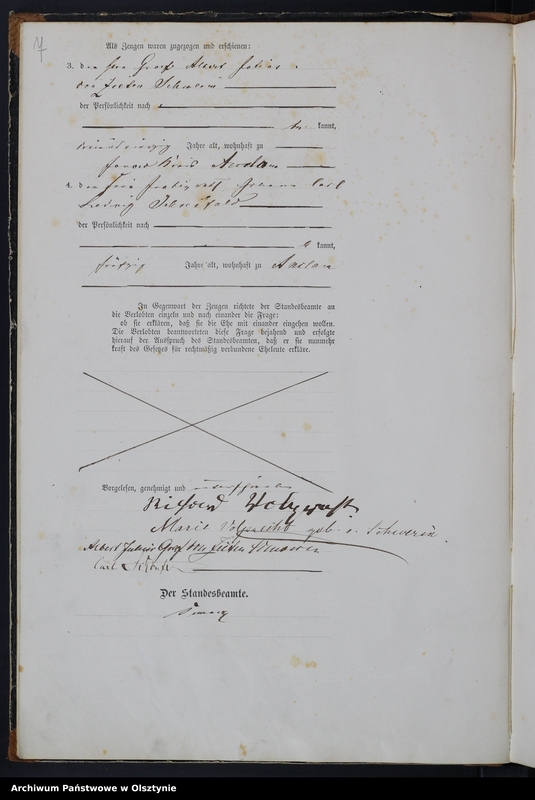 7
Als Zeugen waren zugezogen und erschienen:
3. der Herr Graf Albert Julius
von Zieten Schwerin
der Persönlichkeit nach
kannt,
Jahre alt, wohnhaft zu
Kreis Anclam
4. der Herr Carl
Ludwig
der Persönlichkeit nach
kannt,
fünfzig Jahre alt, wohnhaft zu Anclam
In Gegenwart der Zeugen richtete der Standesbeamte an
die Verlobten einzeln und nach einander die Frage:
ob sie erklären, daß sie die Ehe mit einander eingehen wollen.
Die Verlobten beantworteten diese Frage bejahend und erfolgte
hierauf der Ausspruch des Standesbeamten, daß er sie nunmehr
kraft des Gesetzes für rechtmäßig verbundene Eheleute erkläre.
Vorgelesen, genehmigt und unterschrieben
Richard
Marie geb. v. Schwerin.
Albert Julius Graf von Zieten Schwerin
Carl
Der Standesbeamte.
Archiwum Państwowe w Olsztynie